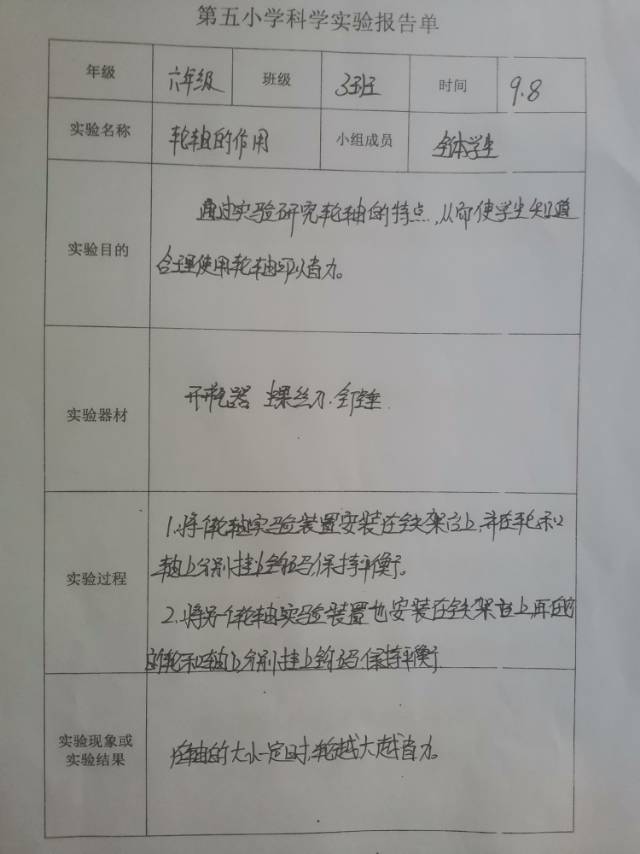 第五小学科学实验报告单
年级 六年级 班级 3班 时间 9.8
实验名称 轮轴的作用 小组成员 全体学生
实验目的
通过实验研究轮轴的特点,从而使学生知道
合理使用轮轴可以省力。
实验器材
开瓶器 螺丝刀.
实验过程
1.将个轮轴实验装置安装在铁架台上,并在轮和
轴上分别挂上钩码,保持平衡。
2.将另一个轮轴实验装置也安装在铁架台上,再在
的轮和轴上分别挂上钩码保持平衡
实验现象或
实验结果
轴的大小一定时,轮越大越省力。